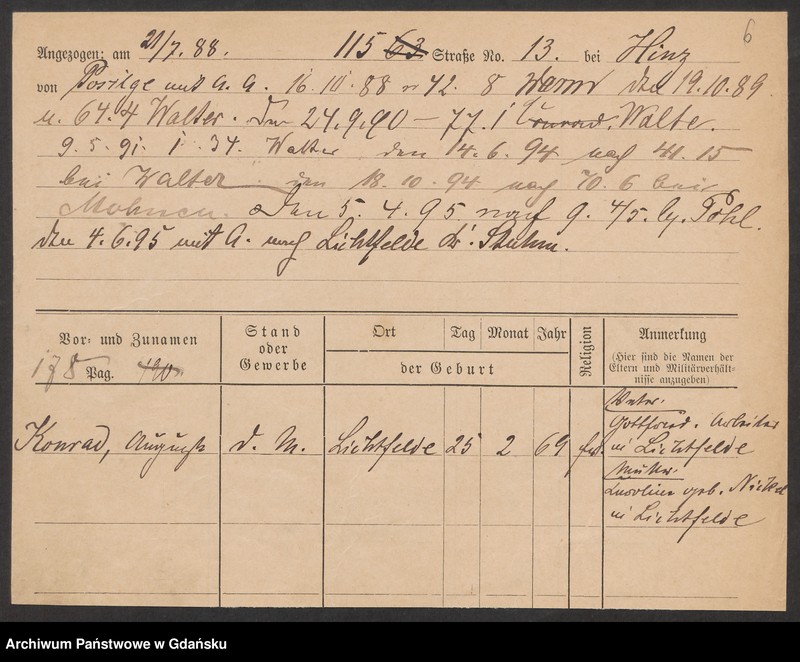 6
Angezogen: am 21/7. 88. 115 63 Straße No. 13. bei Hinz
von mit A. A. 16. 10. 88 n 42. 8 den 19. 10. 89.
u. 64. 4 Walter. Den 24. 9. 90 – 77. 1 Walte.
9. 5. 91. 1. 34. Walter den 14. 6. 94 nach 41. 15
bei Walter den 18. 10. 94 nach 70. 6 bei
Den 5. 4. 95 nach 9. 4/5. by. Pohl.
den 4. 6. 95 mit A. nach Lichtfelde Kr. Stuhm.
Vor- und Zunamen
178 Pag. 190
Stand
oder
Gewerbe
Ort Tag Monat Jahr
der Geburt
Religion
Anmerkung
(Hier sind die Namen der
Eltern und Militärverhält-
nisse anzugeben)
Konrad, Auguste d. M. Lichtfelde 25 2 69
Vater:
Gottfried. Arbeiter
in Lichtfelde
Mutter:
geb. Nickel
in Lichtfelde
Archiwum Państwowe w Gdańsku